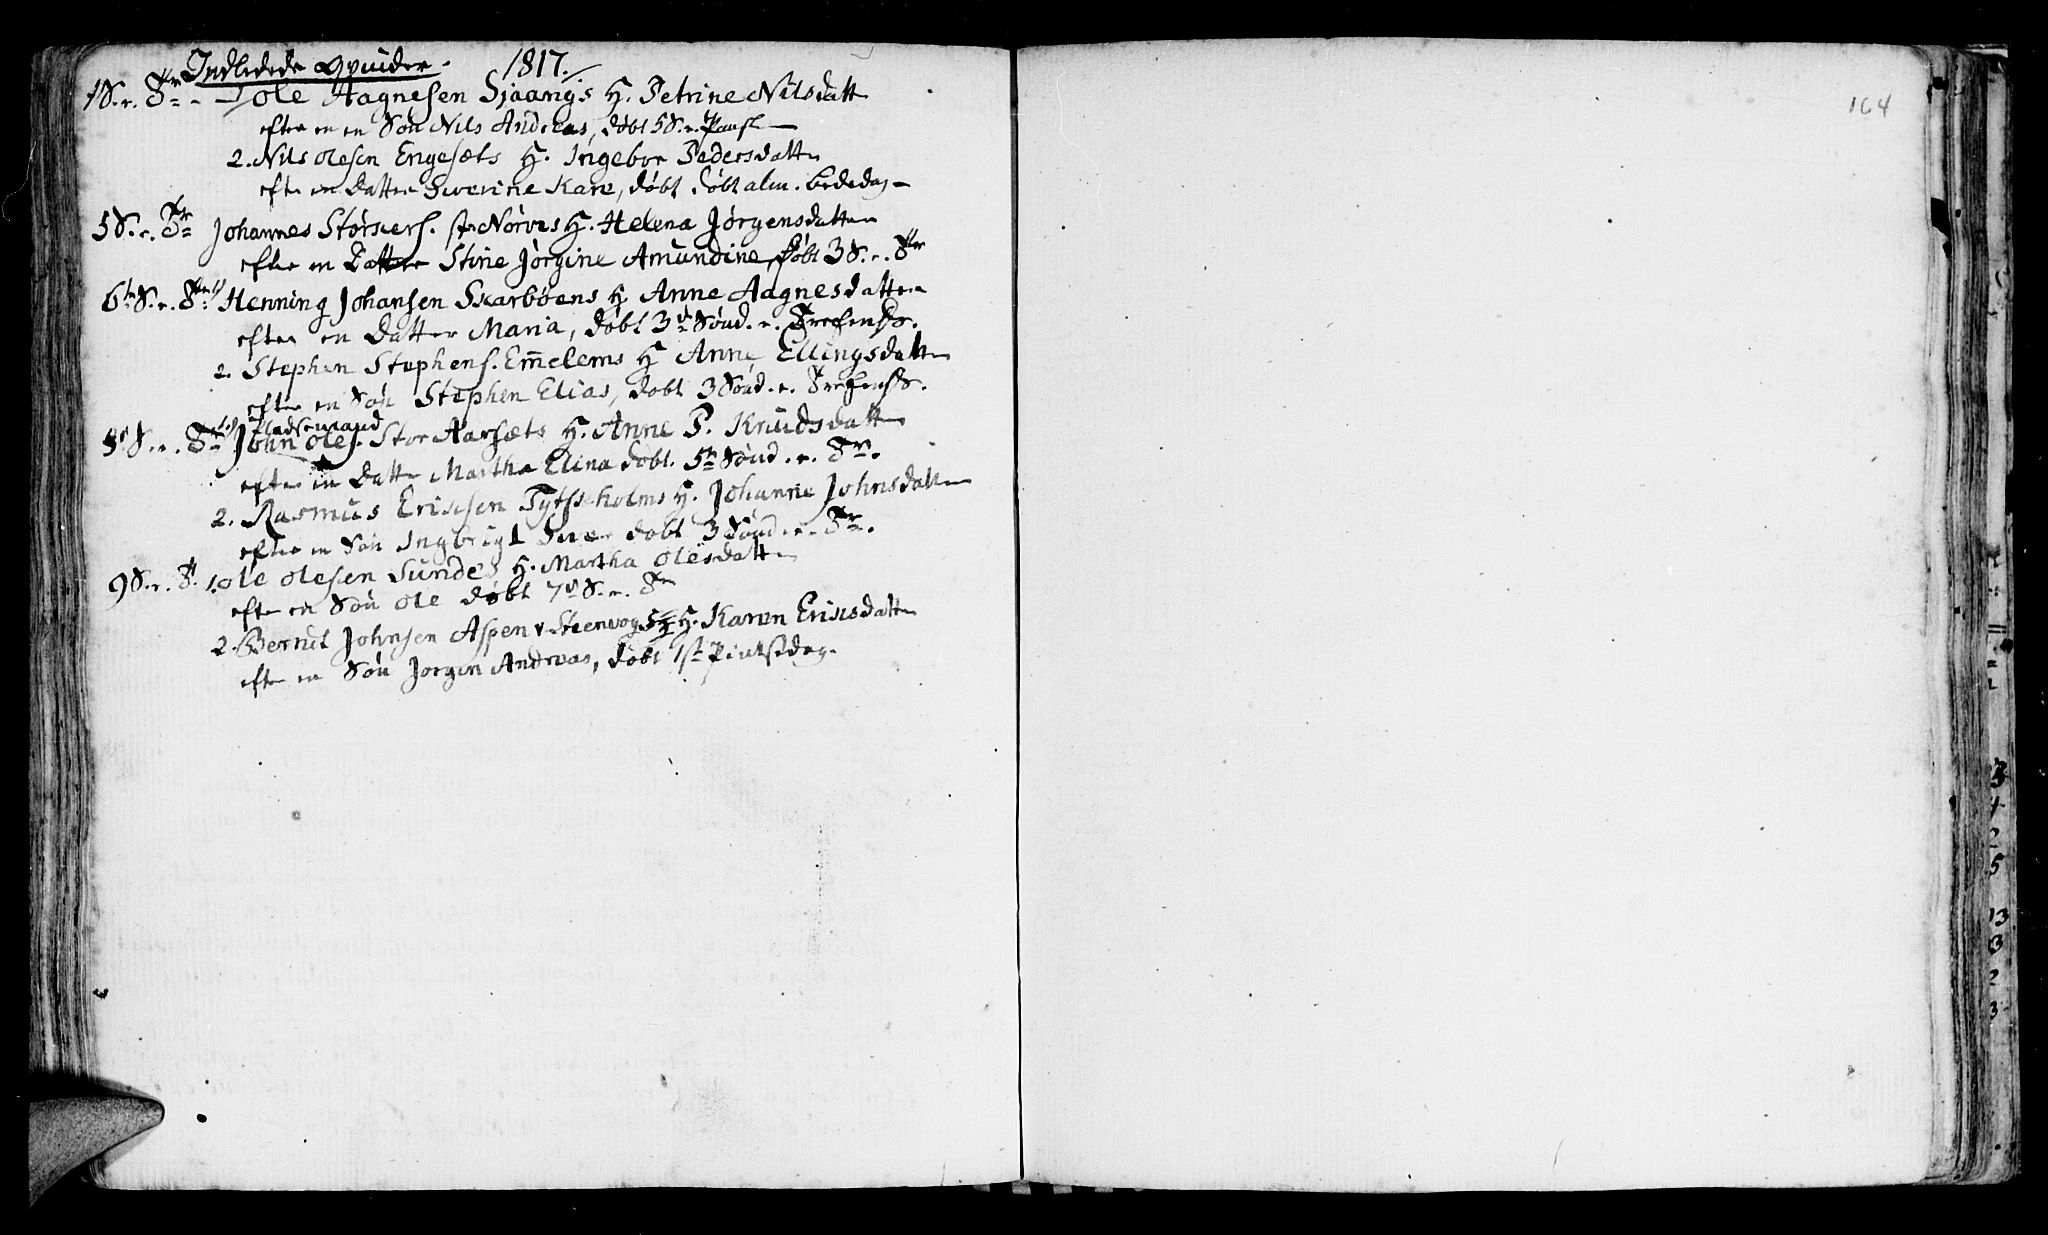 Indledede Qvinder. 1817.
1 S. e. Tr. Ole Aagnesen Sjaangs H. Petrine Nilsdatt
efter en Søn Nils Andreas, døbt 5 S. e. Paask
2. Nils Olesen Engesæts H. Ingebor Pedersdatter
efter en Datter Severine Kare, døbt døbt alm. Bededag
5 S. e. Tr. Johannes Størkers. St. Nørves H. Helena Jørgensdatter
efter en Datter Stine Jørgine Amundine, døbt 3 S. e. Tr
6te S. e. Tr. 1) Henning Johansen Skarbøens H. Anne Aagnesdatter
efter en Datter Maria, døbt 3d Sønd. e. Trefens.
2. Stephen Stephens. Emelems H. Anne Ellingsdatter
efter en Søn Stephen Elias, døbt 3 Sønd. e. Trefens.
Pladsemand
8 S. e. Tr. 1) John Oles. Stor Aarsæts H. Anne P. Knudsdatter
efter en Datter Martha Elina døbt 5te Sønd. e. Tr.
2. Rasmus Ericsen Pytteholms H. Johanne Johnsdatter
efter en Søn Ingbrigt døbt 3 Sønd. e. Tr.
9 S. e. Tr. 1. Ole Olesen Sundes H. Martha Olesdatter
efter en Søn Ole døbt 7d S. e. Tr
2. Berndt Johnsen Aspen v Steenvog H. Karen Ericsdatter
efter en Søn Jørgen Andreas, døbt 1ste Pintsedag.
164